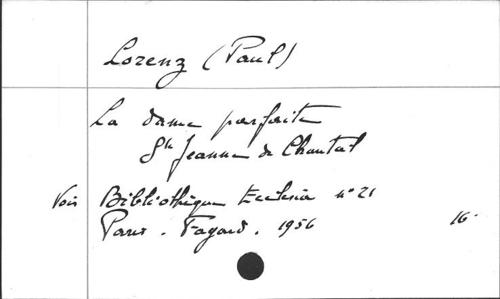 Lorenz (Paul)
La dame parfaite
Ste Jeanne de Chantal
Voir Bibliothèque Ecclesia n° 21
Paris. Fayard. 1956 16°